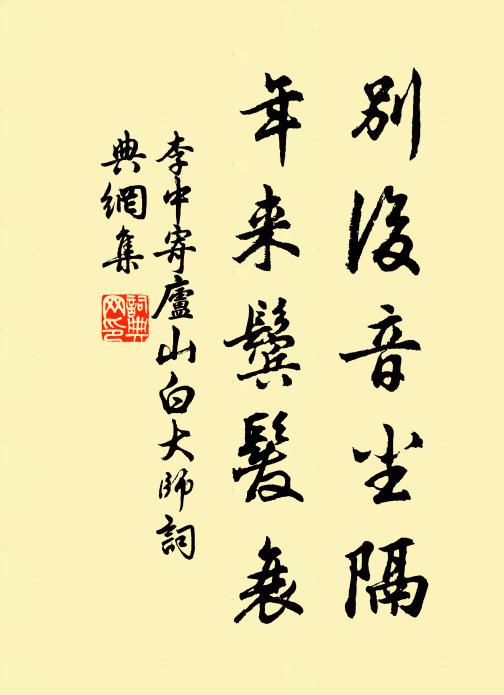 別後音塵隔
年来鬢髮衰
李中寄廬山白大師詞
典網集
詞典網印